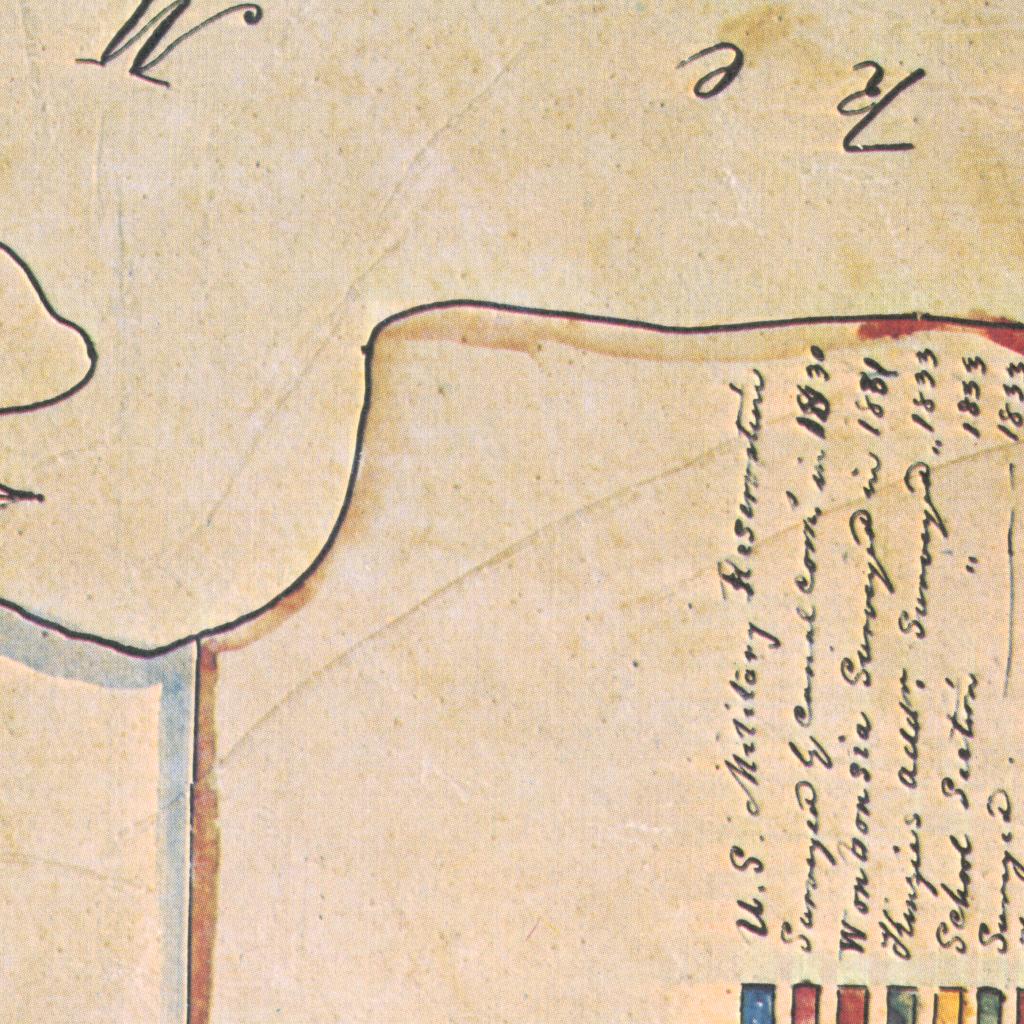 U.S. Military Reservation
Surveyed by canal com. in 1830
Wabonsia Surveyed in 1831
Kinzie's addn. Surveyed " 1833
School Section " 1833
Surveyed 1833